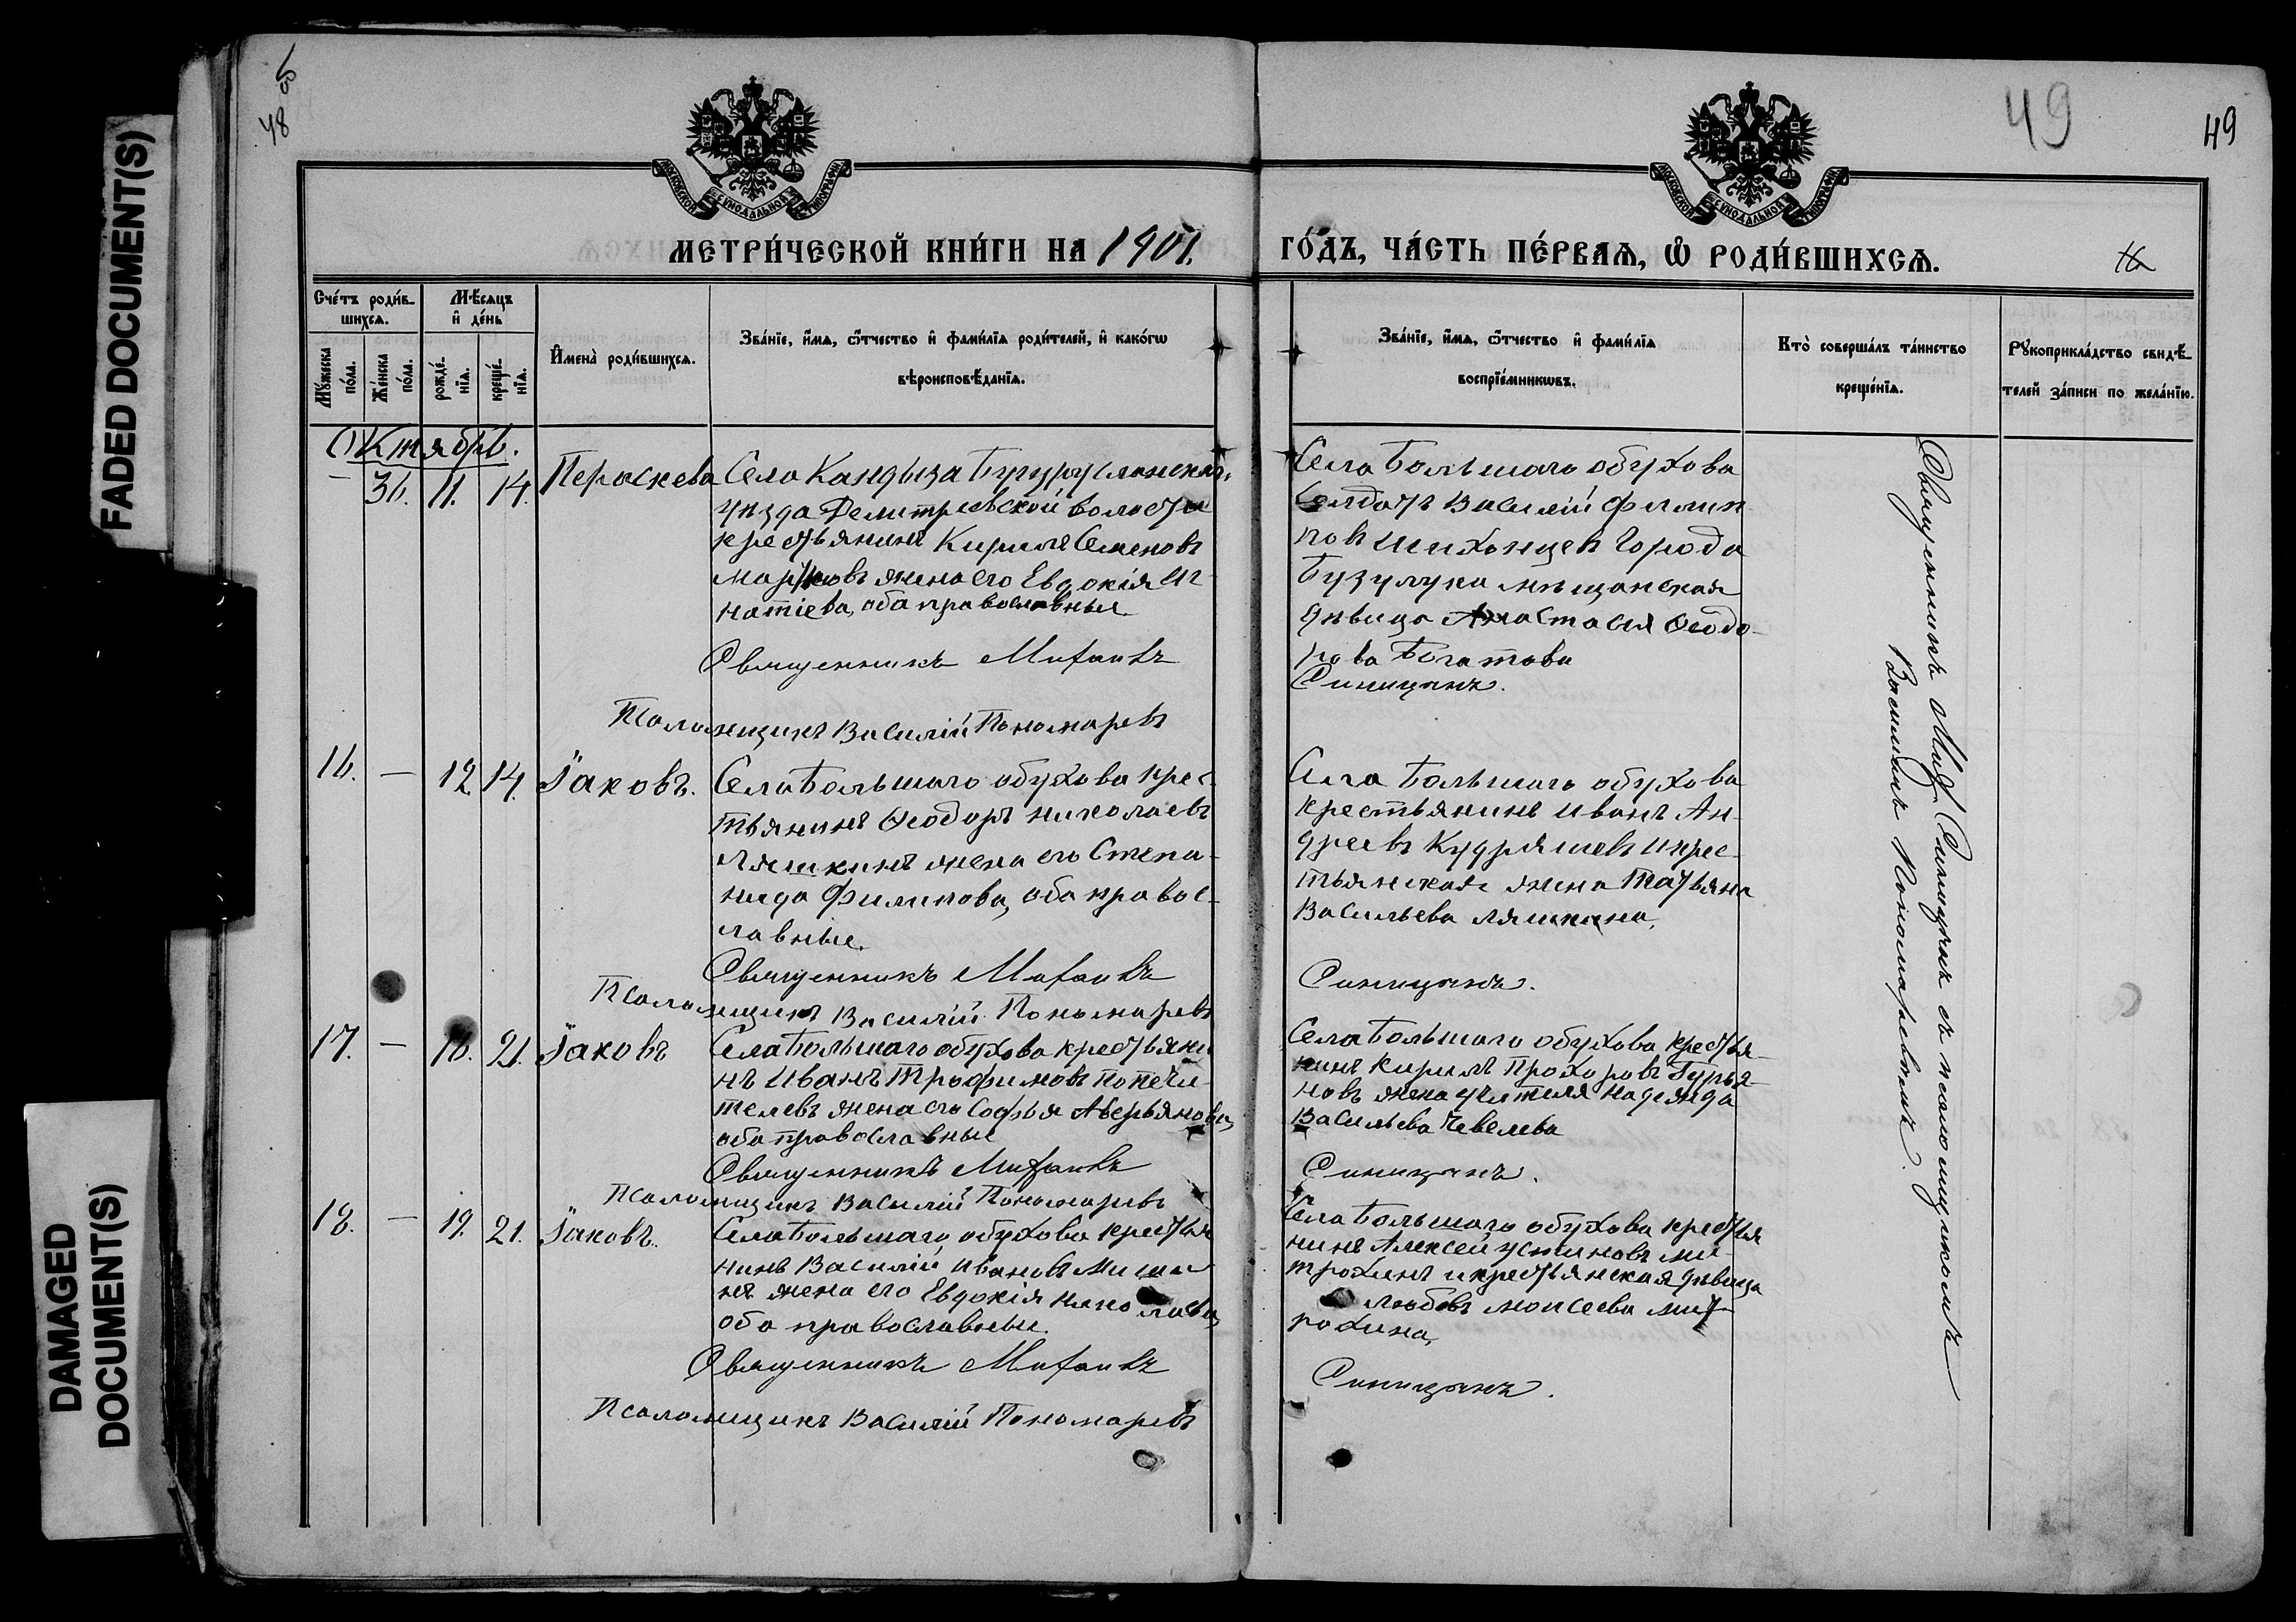 FADED DOCUMENT(S)
DAMAGED
DOCUMENT(S)
48 об
49
49
МОСКОВСКОЙ СѴНОДАЛЬНОЙ ТИПОГРАФІИ
МОСКОВСКОЙ СѴНОДАЛЬНОЙ ТИПОГРАФІИ
МЕТРИ́ЧЕСКОЙ КНИ́ГИ НА 1901.
ГО́ДЪ, ЧА́СТЬ ПЕ́РВАѦ, Ѡ РОДИ́ВШИХСѦ.
Сче́тъ роди́в-
шихсѧ.
Мѣ́сѧцъ
и҆ де́нь
Мꙋ́жеска
по́ла.
Же́нска
по́ла.
рожде́-
нїѧ.
креще́-
нїѧ.
И҆мена̀ роди́вшихсѧ.
Зва́нїе, и҆́мѧ, ѻ҆́тчество и҆ фами́лїѧ роди́телей, и҆ како́гѡ
вѣроисповѣ́данїѧ.
Зва́нїе, и҆́мѧ, ѻ҆́тчество и҆ фами́лїѧ
воспрїе́мникѡвъ.
Кто̀ соверша́лъ та́инство
креще́нїѧ.
Рꙋкоприкла́дство свидѣ́-
телей за́писи по жела́нїю.
Октябрь.
— 36. 11. 14. Пераскева Село Кандыза Бугурусланскаго
уѣзда Демитревской волости
крестьянинъ Кирилъ Семеновъ
жена его Евдокія Иг-
натіева, оба православные
Священникъ Мих
Псаломщикъ Василій Пономаревъ
Села Большаго обухова
Солдатъ Василій Филип
повъ Шихонцевъ Города
Бузулука мѣщанская
дѣвица Анастасія Ѳеодо-
рова Богатова
Синицынъ.
16. — 12. 14. Іаковъ. Села Большаго обухова крес-
тьянинъ Ѳеодоръ николаевъ
Ляшкинъ жена его Степа-
нида Филипова, оба правос-
лавные.
Священникъ Мих
Псаломщикъ Василій Пономаревъ
Села Большаго обухова
крестьянинъ иванъ Ан-
дреевъ Кудряшевъ и крес-
тьянская жена Татьяна
Васильева Ляшкина,
Синицынъ.
17. — 16. 21. Іаковъ Села Большаго обухова крестьяни
нъ Иванъ Трофимовъ Попечи-
телевъ жена его Софья Аверьянова,
оба православные
Священникъ Мих
Псаломщикъ Василій Пономаревъ
Села Большаго обухова крестья-
нинъ Кирилъ Прохоровъ Гурья-
новъ жена учителя надежда
Васильева Чевелева
Синицынъ.
18. — 19. 21. Іаковъ. Села Большаго обухова крестья
нинъ Василій ивановъ Миши
нъ жена его Евдокія николаева,
оба православные.
Священникъ Мих
Псаломщикъ Василій Пономаревъ
Села Большаго обухова крестья
нинъ Алексей устиновъ ми-
трохинъ и крестьянская дѣвица
любовь моисеева мит-
рохина,
Синицынъ.
Священникъ Мих. Синицынъ съ псаломщикомъ
Василіемъ Пономаревымъ.